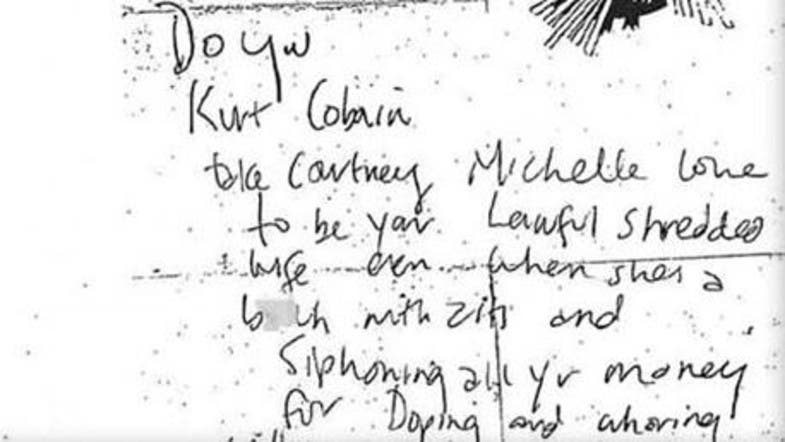 Do you
Kurt Cobain
take Cortney Michelle Love
to be your Lawful shredded
wife even when shes a
b ch with zits and
Siphoning all yr money
for Doping and whoring